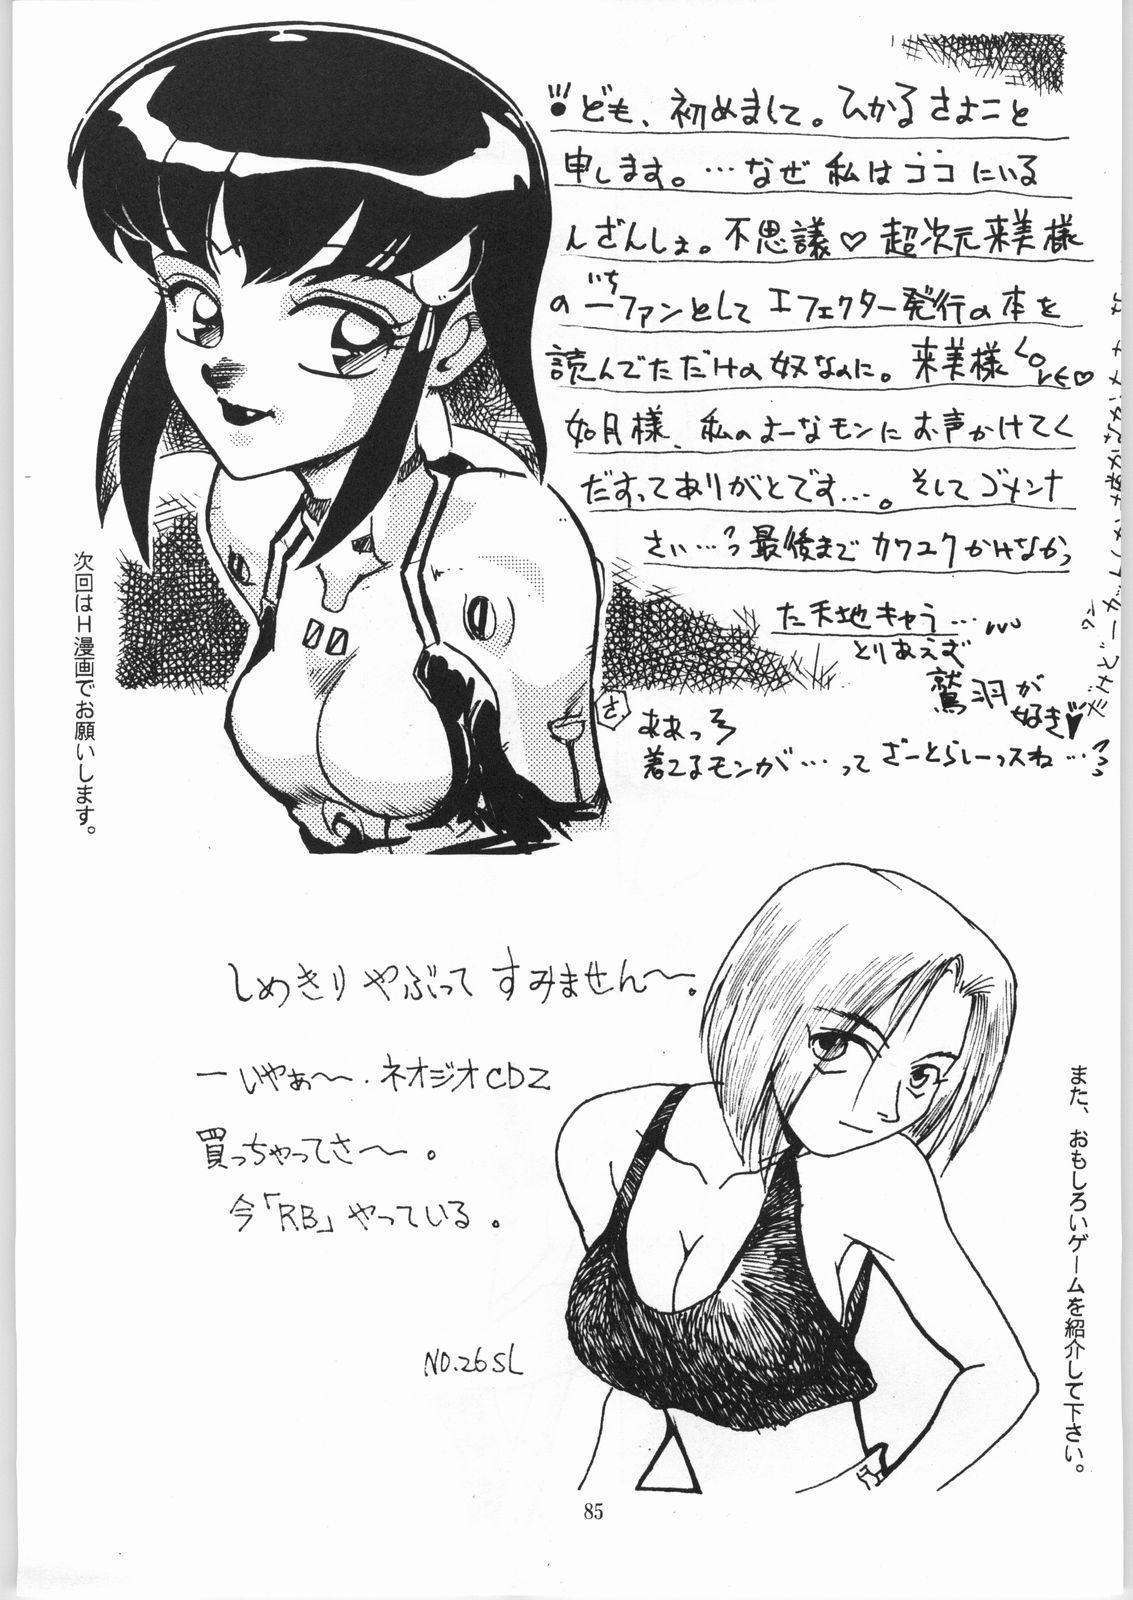 ども、初めまして。ひかるさよこと
申します。…なぜ私はココにいる
んざんしょ。不思議♡超次元来美様
の一ファンとしてエフェクター発行の本を
いち
読んでただけの奴なのに。来美様LOVE♡
如月様、私のよーなモンにお声かけてく
ださってありがとです…。そしてゴメンナ
さい…っ最後までカワユクかけなかっ
た天地キャラ…
とりあえず
鷲羽が
好き♥
さ
ああっ
着てるモンが…って ざーとらしーっスね…
次回はH漫画でお願いします。
しめきりやぶってすみません〜。
ーいやぁ〜.ネオジオCDZ
買っちゃってさ〜。
今「RB」やっている。
NO.26SL
また、おもしろいゲームを紹介して下さい。
85